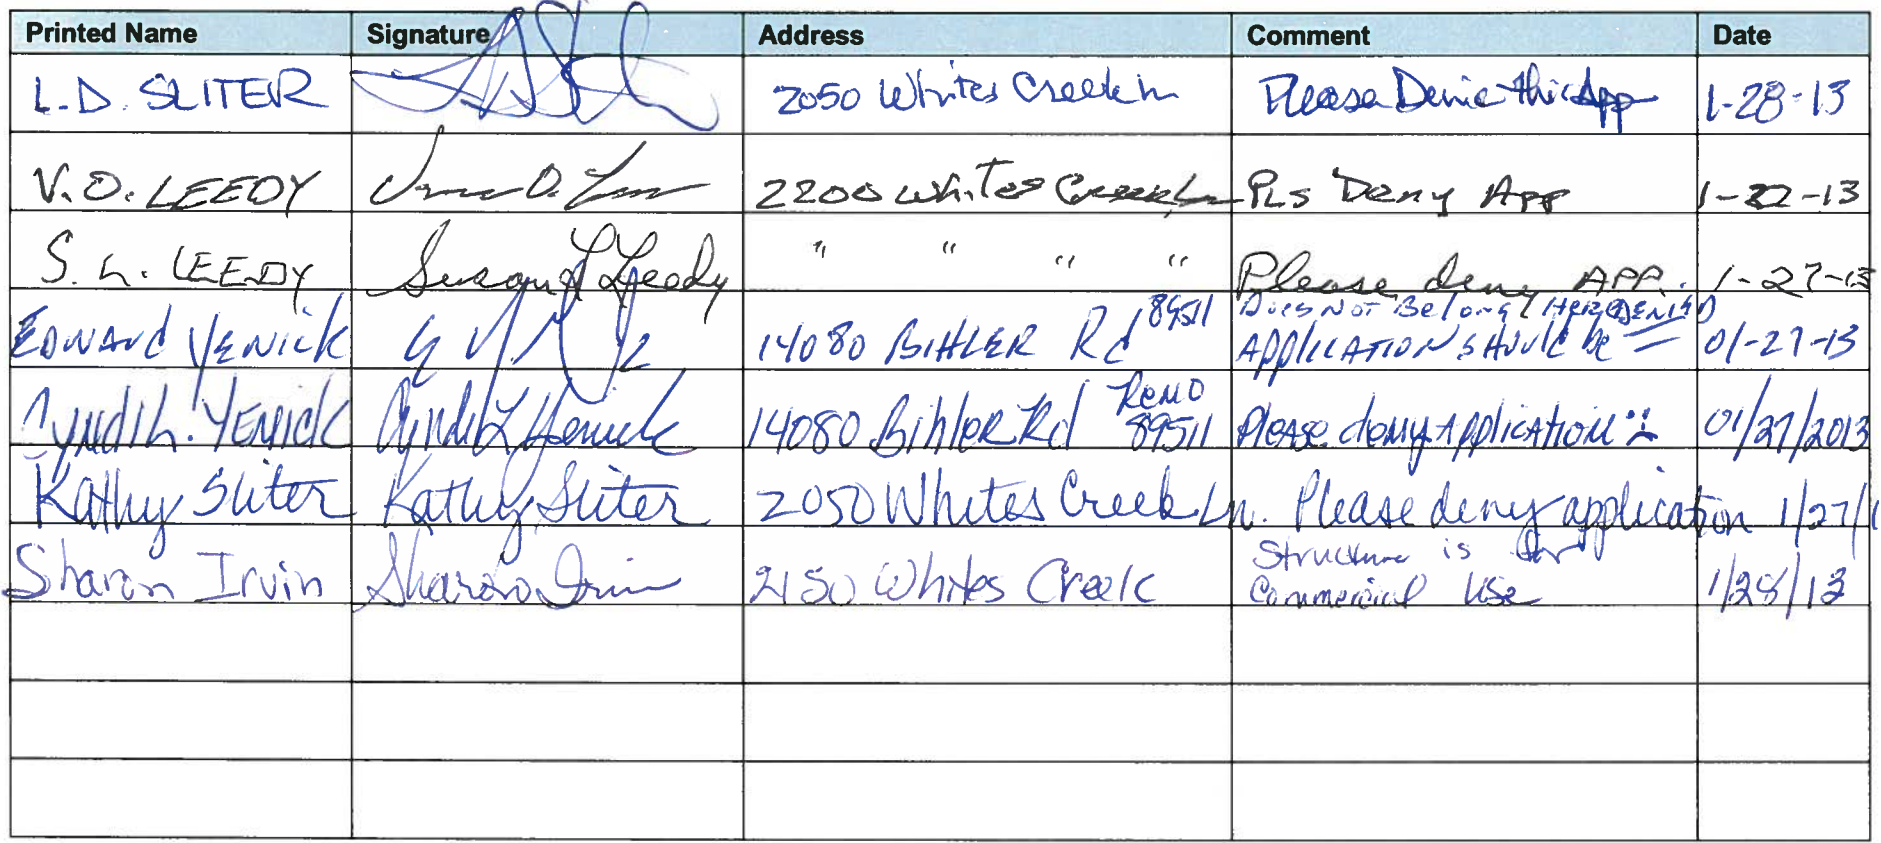 Printed Name Signature Address Comment Date
L.D. SLITER 2050 Whites Creek Ln Please Denie this App 1-28-13
V.O. LEEDY 2200 Whites Creek Ln Pls Deny App 1-27-13
S. L. LEEDY Susan L Leedy " " " " Please deny APP. 1-27-13
EDWARD YENICK 14080 BIHLER Rd 89511 Does Not Belong Here DENIED APPLICATION SHOULD be 01-27-13
Cyndi L. YENICK Cyndi L Yenick 14080 Bihler Rd Reno 89511 Please deny APPLICATION 01/27/2013
Kathy Sliter Kathy Sliter 2050 Whites Creek Ln. Please deny application 1/27/1
Sharon Irvin Sharon Irvin 2150 Whites Creek Structure is for Commercial Use 1/28/13